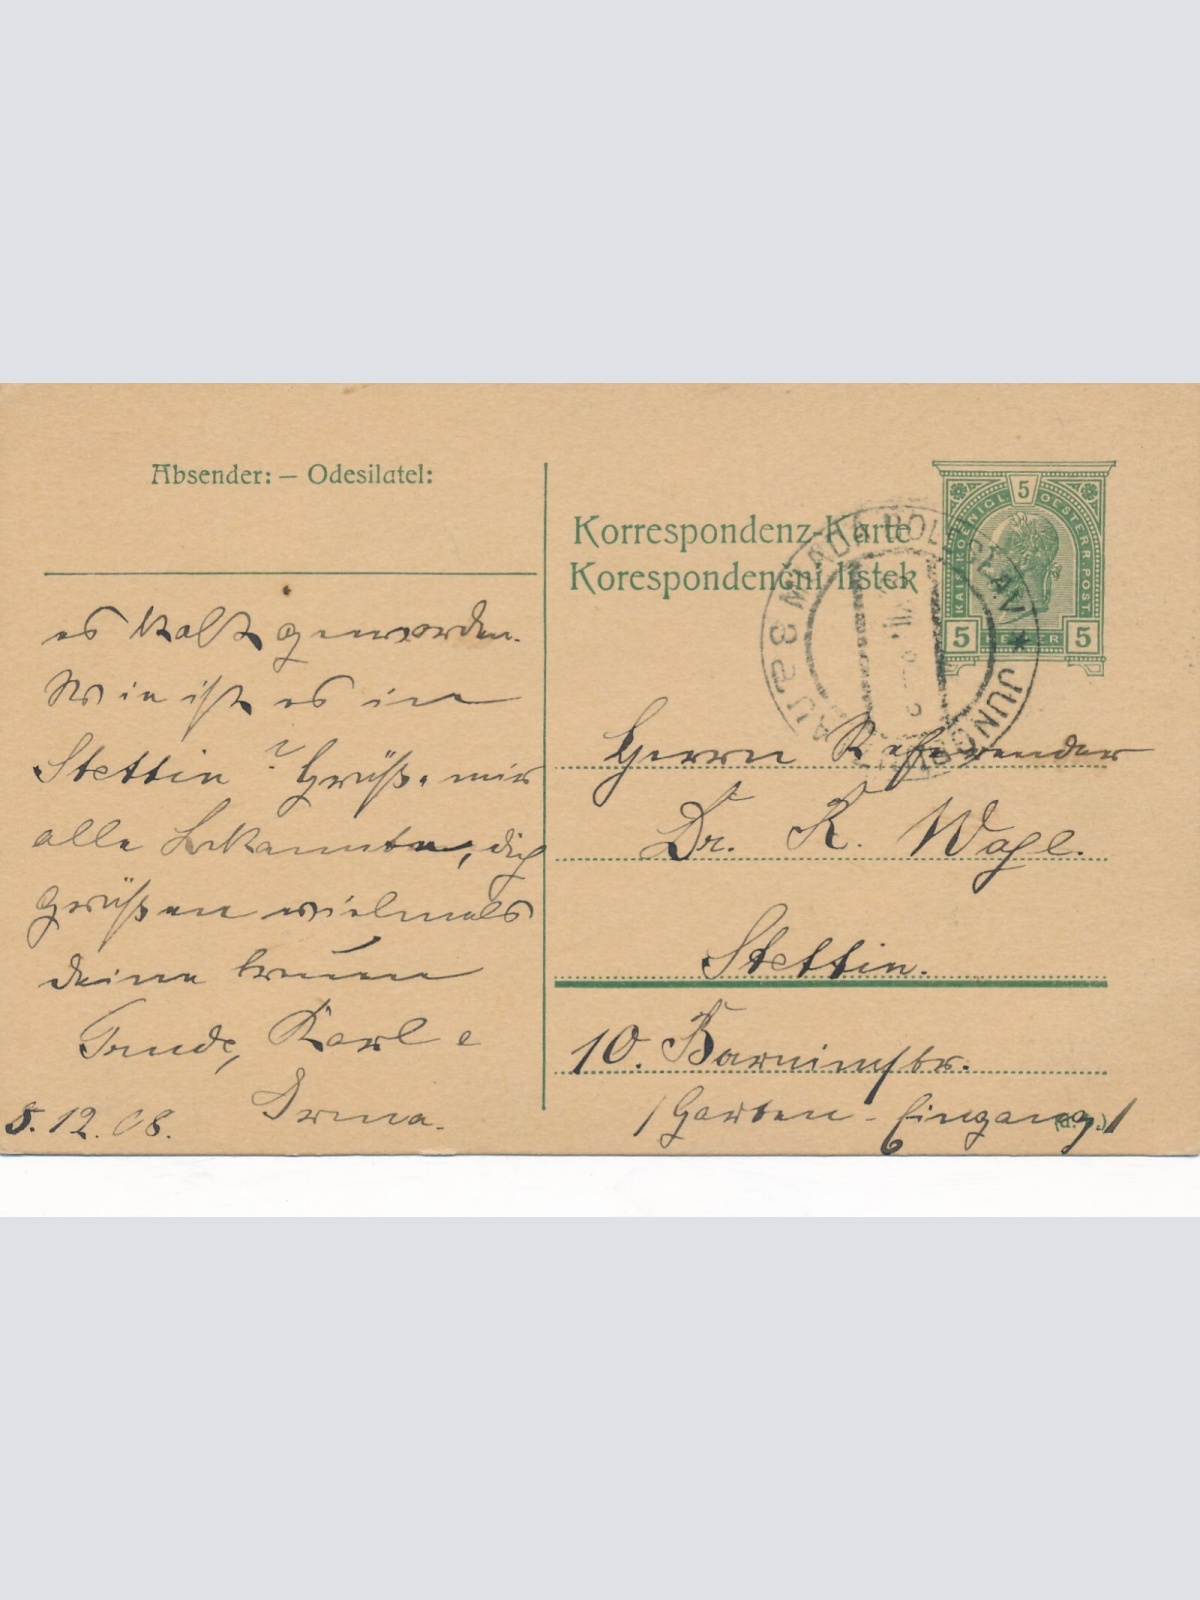 Absender: – Odesilatel:
es kalt geworden.
Wie ist es in
Stettin? Grüße mir
alle Bekannten, dich
grüßen vielmals
deine treuen
Trude, Karl e
Irma.
5.12.08.
Korrespondenz-Karte
Korespondenční lístek
5
KAIS. KOENIGL. OESTERR. POST.
5 HELLER 5
MLADÁ BOLESLAV * JUNGBUNZLAU 3a
Herrn Referendar
Dr. K. Wagl.
Stettin.
10. Barnimstr.
/Garten-Eingang./